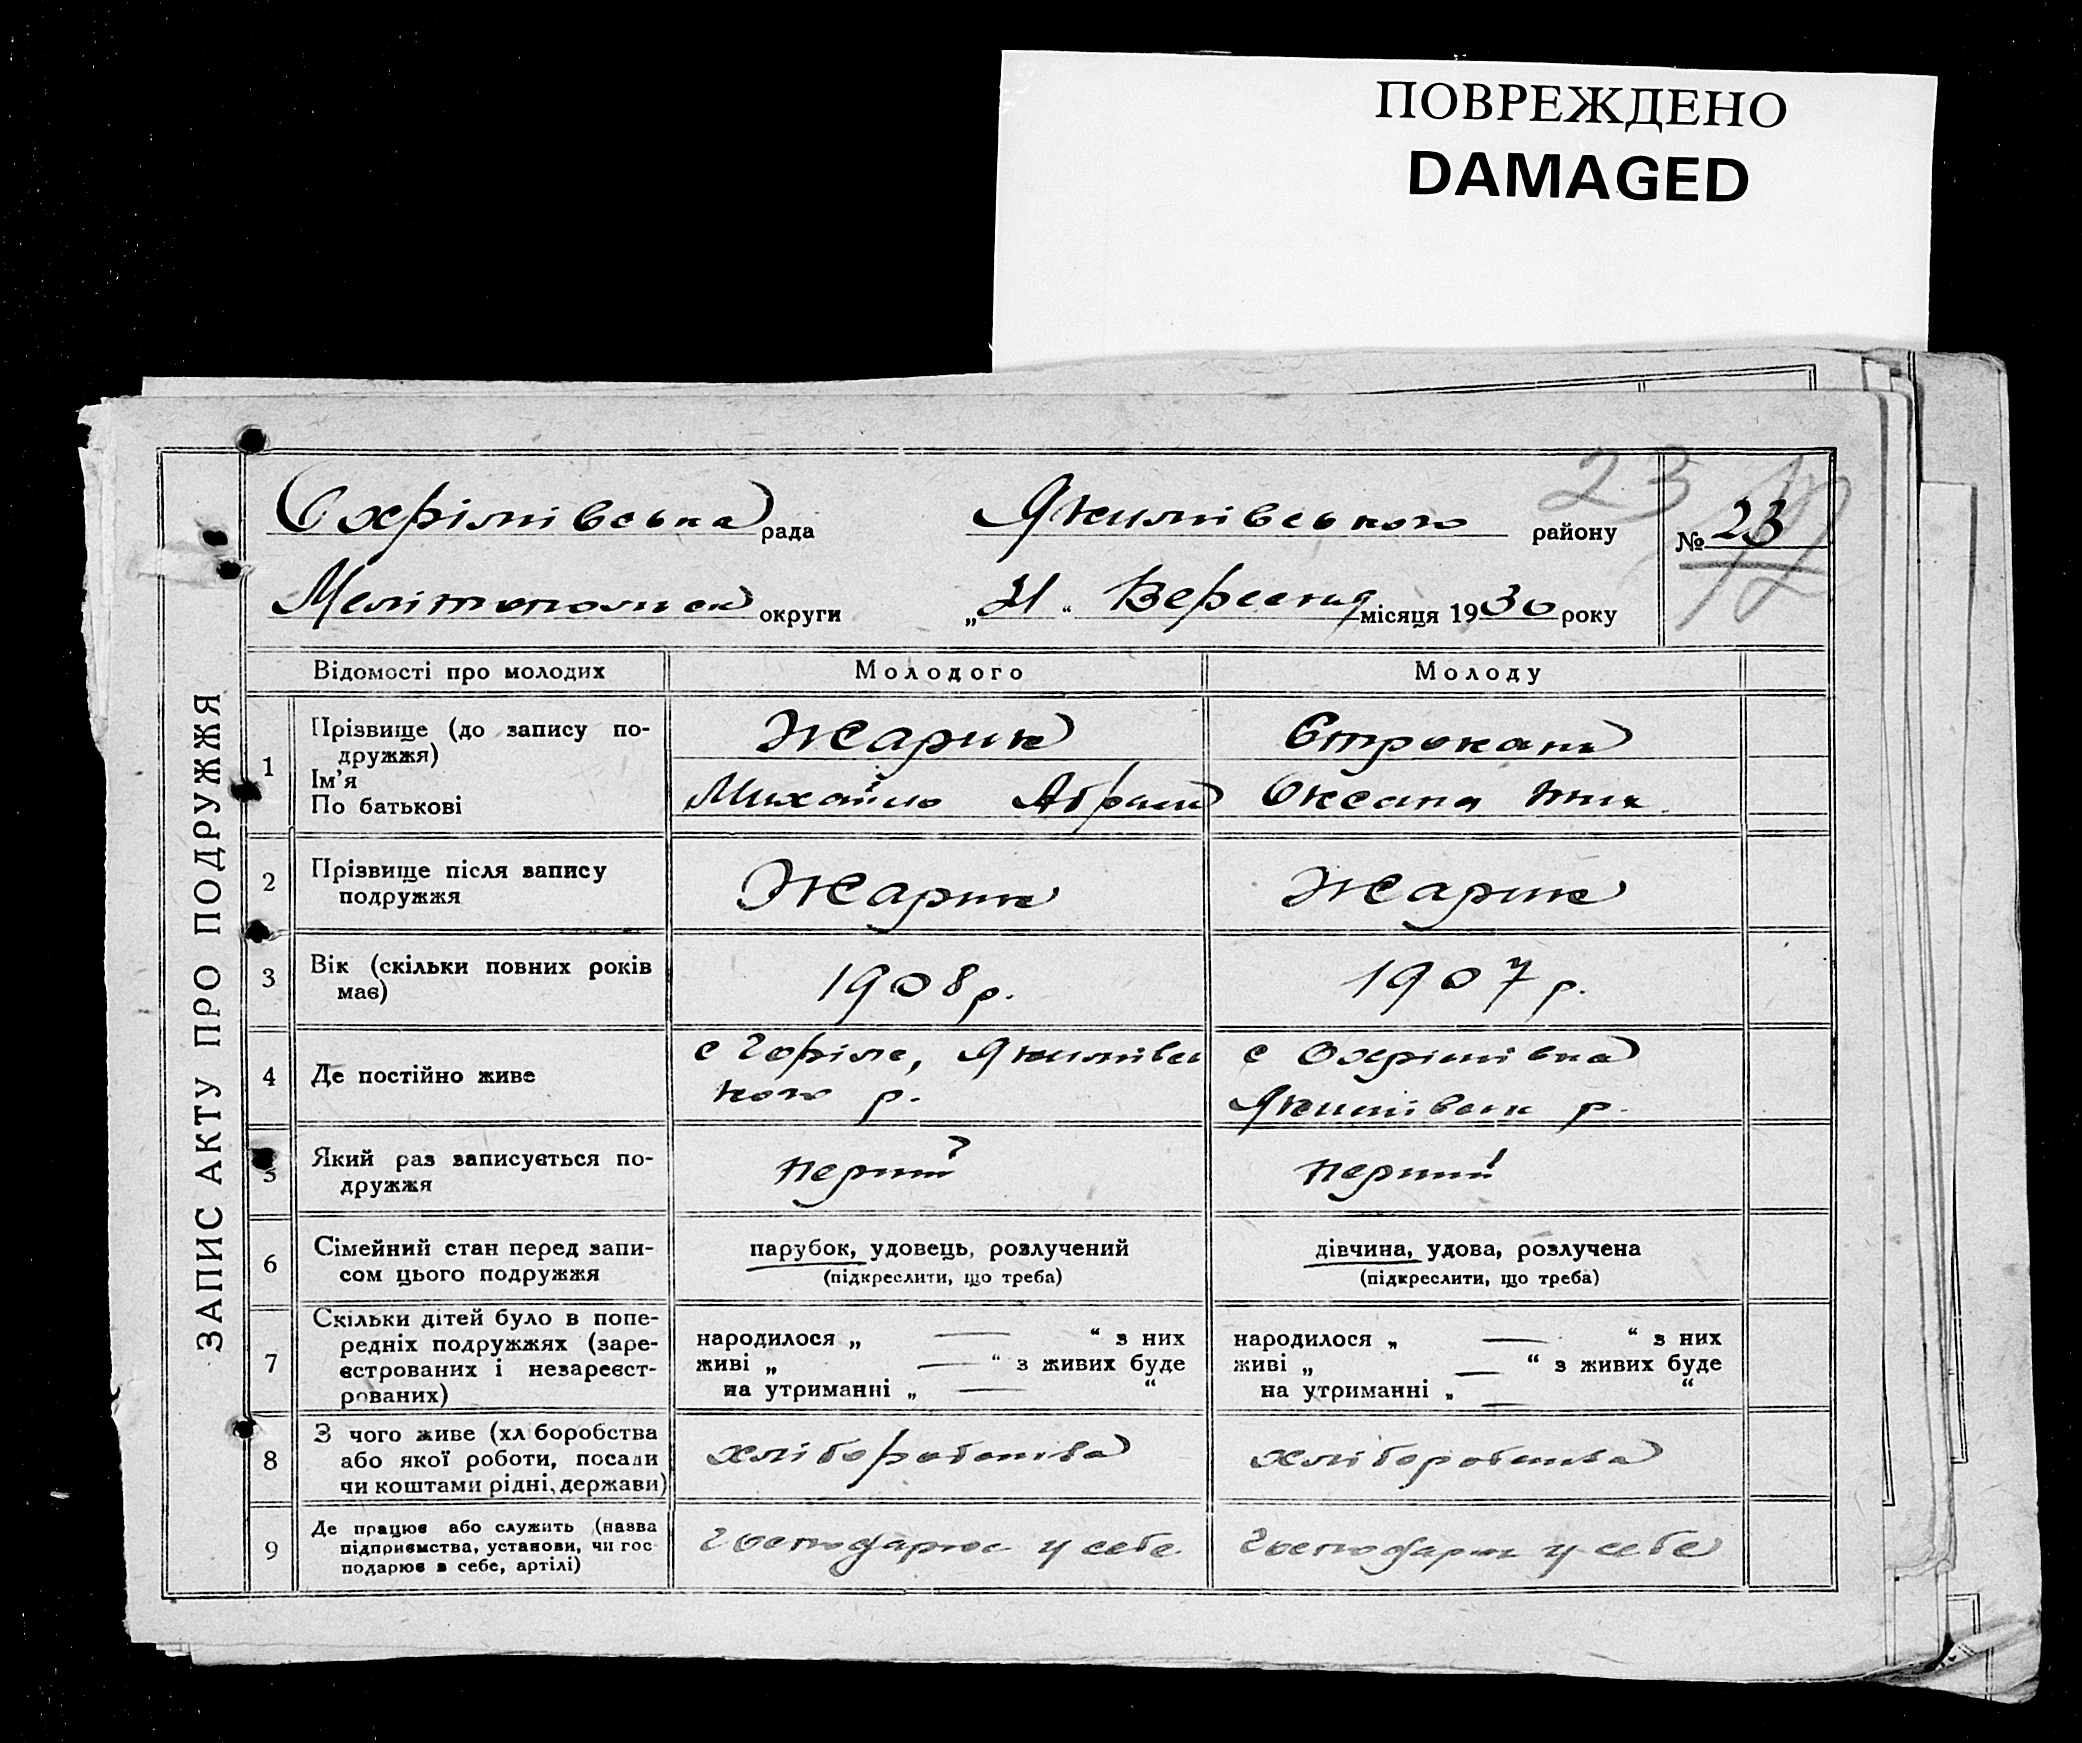 ПОВРЕЖДЕНО
DAMAGED
23
Охрімівська рада Якимівського району № 23
Мелітопольск округи „21“ Вересня місяця 1930 року
ЗАПИС АКТУ ПРО ПОДРУЖЖЯ
Відомості про молодих Молодого Молоду
1 Прізвище (до запису по-
дружжя)
Ім’я
По батькові
Жарик
Михайло Абрам
Строкань
Оксана
2 Прізвище після запису
подружжя
Жарик Жарик
3 Вік (скільки повних років
має)
1908 р. 1907 р.
4 Де постійно живе
с Горіле, Якимівсь
кого р.
с Охрімівка
Якимівськ р.
5 Який раз записується по-
дружжя
перший перший
6 Сімейний стан перед запи-
сом цього подружжя
парубок, удовець, розлучений
(підкреслити, що треба)
дівчина, удова, розлучена
(підкреслити, що треба)
7 Скільки дітей було в попе-
редніх подружжях (заре-
єстрованих і незареєст-
рованих)
народилося „ — “ з них
живі „ — “ з живих буде
на утриманні „ — “
народилося „ — “ з них
живі „ — “ з живих буде
на утриманні „ — “
8 З чого живе (хл боробства
або якої роботи, посади
чи коштами рідні, держави)
хліборобства хліборобства
9 Де працює або служить (назва
підприємства, установи, чи гос
подарює в себе, артілі)
Господарює у себе Господарює у себе